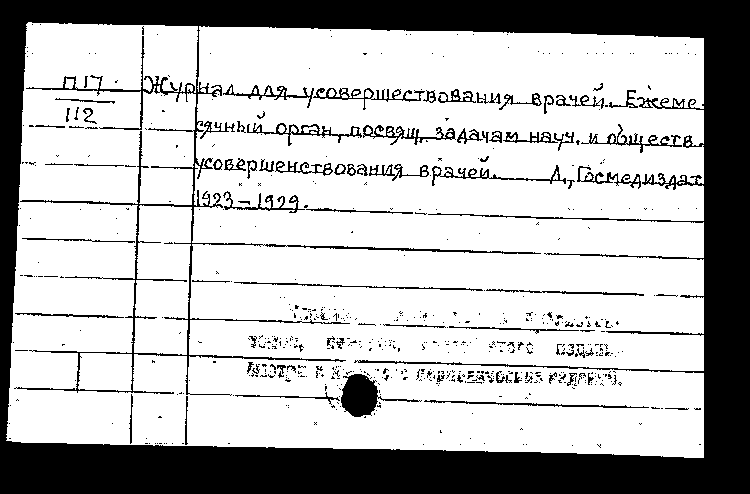 П17 Журнал для усовершествования врачей. Ежеме-
112 сячный орган, посвящ. задачам науч. и обществ.
усовершенствования врачей. Л., Госмедиздат
1923 – 1929.
томов, номеров, этого издан.
смотри в периодических изданий.